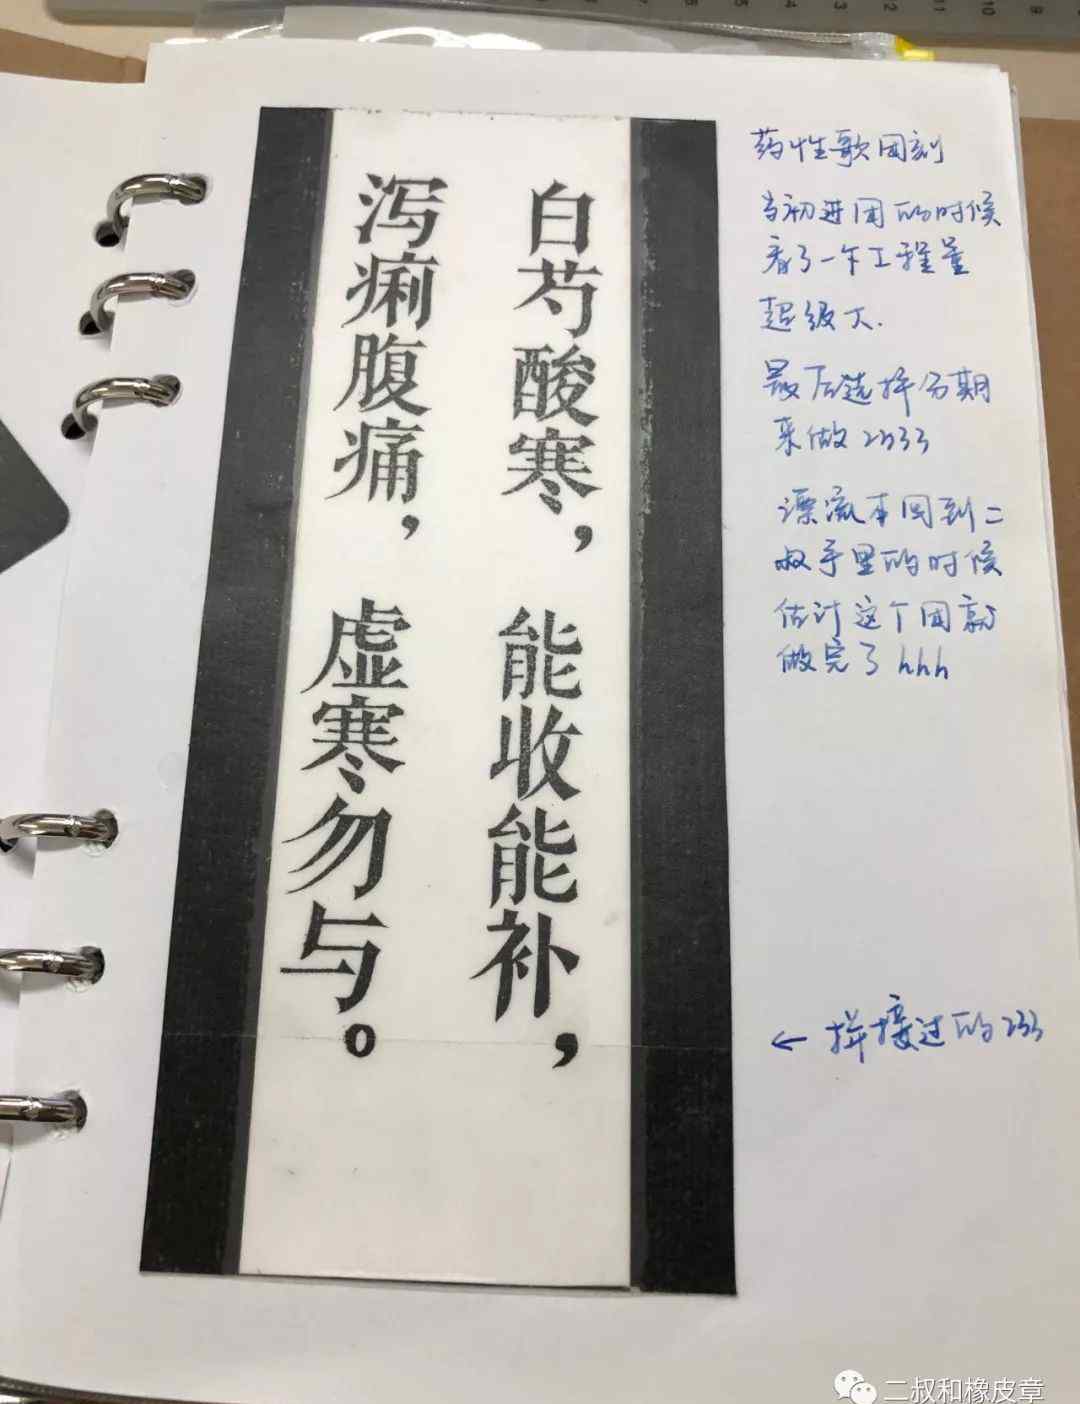 白芍酸寒，能收能补，
泻痢腹痛，虚寒勿与。
药性歌团刻
当初进团的时候
看了一下工程量
超级大.
最后选择分期
来做2333
漂流本回到二
叔手里的时候
估计这个团就
做完了hhh
← 拼接过的233
二叔和橡皮章